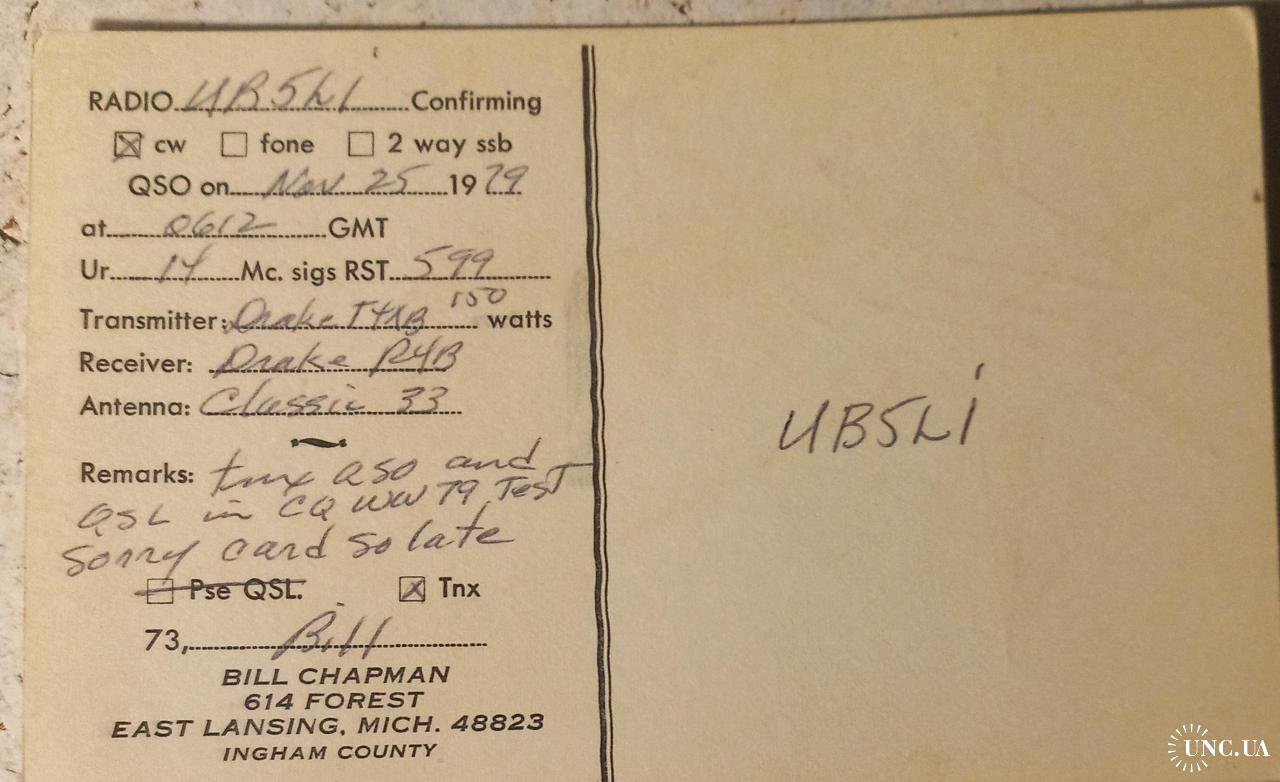 RADIO UB5LI Confirming
☒ cw ☐ fone ☐ 2 way ssb
QSO on Nov 25 1979
at 0612 GMT
Ur 14 Mc. sigs RST 599
Transmitter: Drake T4XB 150 watts
Receiver: Drake R4B
Antenna: Classic 33
Remarks: tnx QSO and
QSL in CQ WW 79 Test
Sorry card so late
☐ Pse QSL. ☒ Tnx
73, Bill
BILL CHAPMAN
614 FOREST
EAST LANSING, MICH. 48823
INGHAM COUNTY
UB5LI
UNC.UA